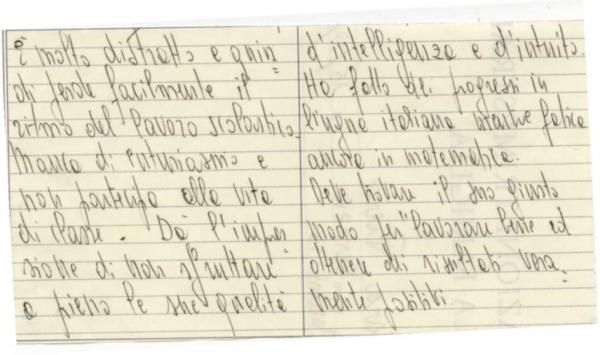 è molto distratto e quin=
di perde facilmente il
ritmo del lavoro scolastico.
Manca di entusiasmo e
non partecipa alla vita
di classe. Dà l'impres
sione di non sfruttare
a pieno le sue qualità
d'intelligenza e d'intuito.
Ha fatto dei progressi in
lingua italiana mentre fatica
ancora in matematica.
Deve trovare il suo giusto
modo per lavorare bene ed
ottenere dei risultati vera=
mente positivi.